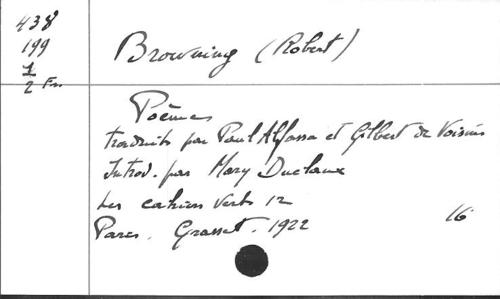 438
199
1
2 Fm
Browning (Robert)
Poèmes
traduits par Paul Alfassa et Gilbert de Voisins
Introd. par Mary Duclaux
Les cahiers verts 12
Paris. Grasset. 1922 16°